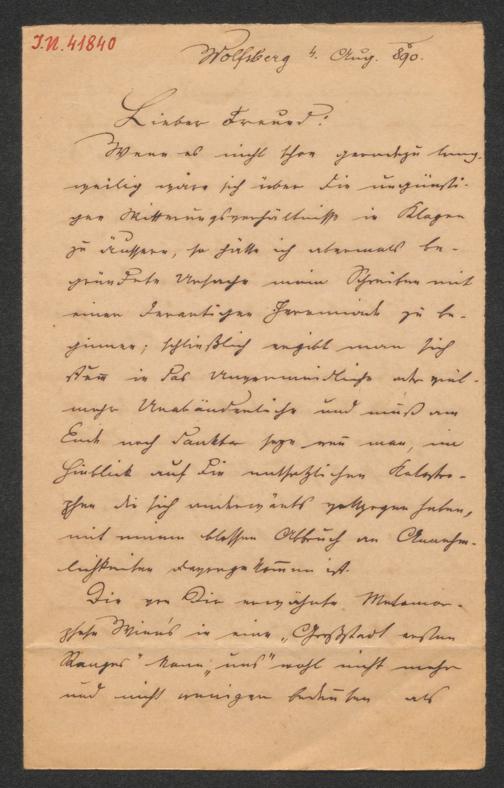 I.N. 41840
Wolfsberg 4. Aug. 890.
Lieber Freund!
Wenn es nicht schon geradezu lang-
weilig wäre sich über die ungünsti-
gen Witterungsverhältnisse in Klagen
zu äussern, so hätte ich abermals be-
gründete Ursache mein Schreiben mit
einer derartigen Jeremiade zu be-
ginnen; schließlich ergibt man sich
eben in das Unvermeidliche oder viel-
mehr Unabänderliche und muß am
Ende noch dankbar sein wenn man, im
Hinblick auf die entsetzlichen Katastro-
phen die sich anderwärts zugetragen haben,
mit einem blossen Abbruch an Annehm-
lichkeiten davongekommen ist.
Die von Dir erwähnte Metamor-
phose Wien's in eine „Großstadt ersten
Ranges" kann „uns" wohl nicht mehr
und nicht weniger bedeuten als